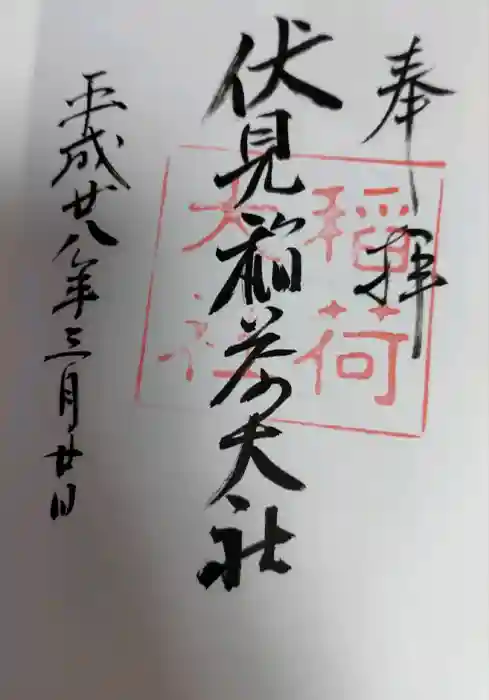 奉拝
伏見稲荷大社
平成廿八年三月廿日
稲荷
大社